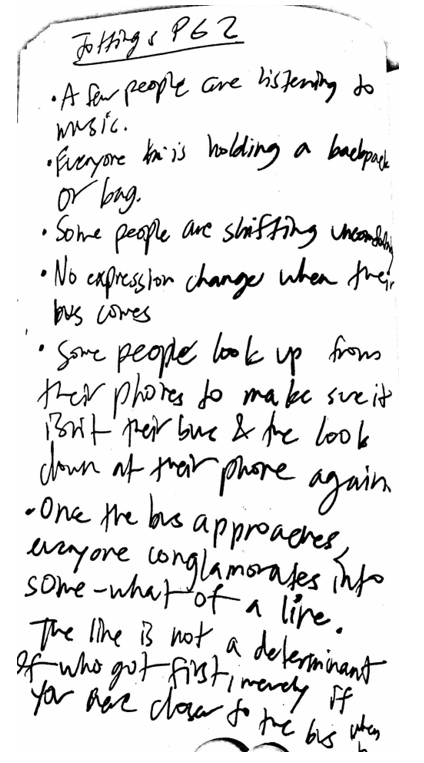 Jottings PG 2
• A few people are listening to
music.
• Everyone is holding a backpack
or bag.
• Some people are shifting uncomfortably
• No expression change when their
bus comes
• Some people look up from
their phones to make sure it
isn't their bus & the look
down at their phone again
• Once the bus approaches,
everyone conglamorates into
some-what of a line.
The line is not a determinant
of who got first, merely if
you were closer to the bus when